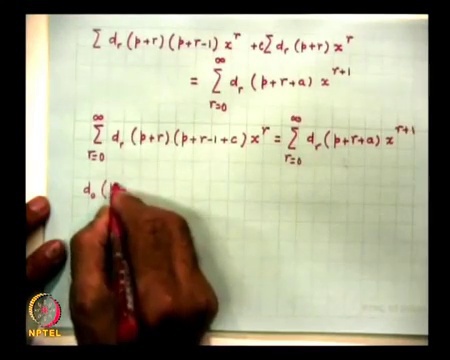 Σ d_r (p+r) (p+r-1) x^r + c Σ d_r (p+r) x^r
= Σ_{r=0}^{∞} d_r (p+r+a) x^{r+1}
Σ_{r=0}^{∞} d_r (p+r) (p+r-1+c) x^r = Σ_{r=0}^{∞} d_r (p+r+a) x^{r+1}
d_0 (
NPTEL